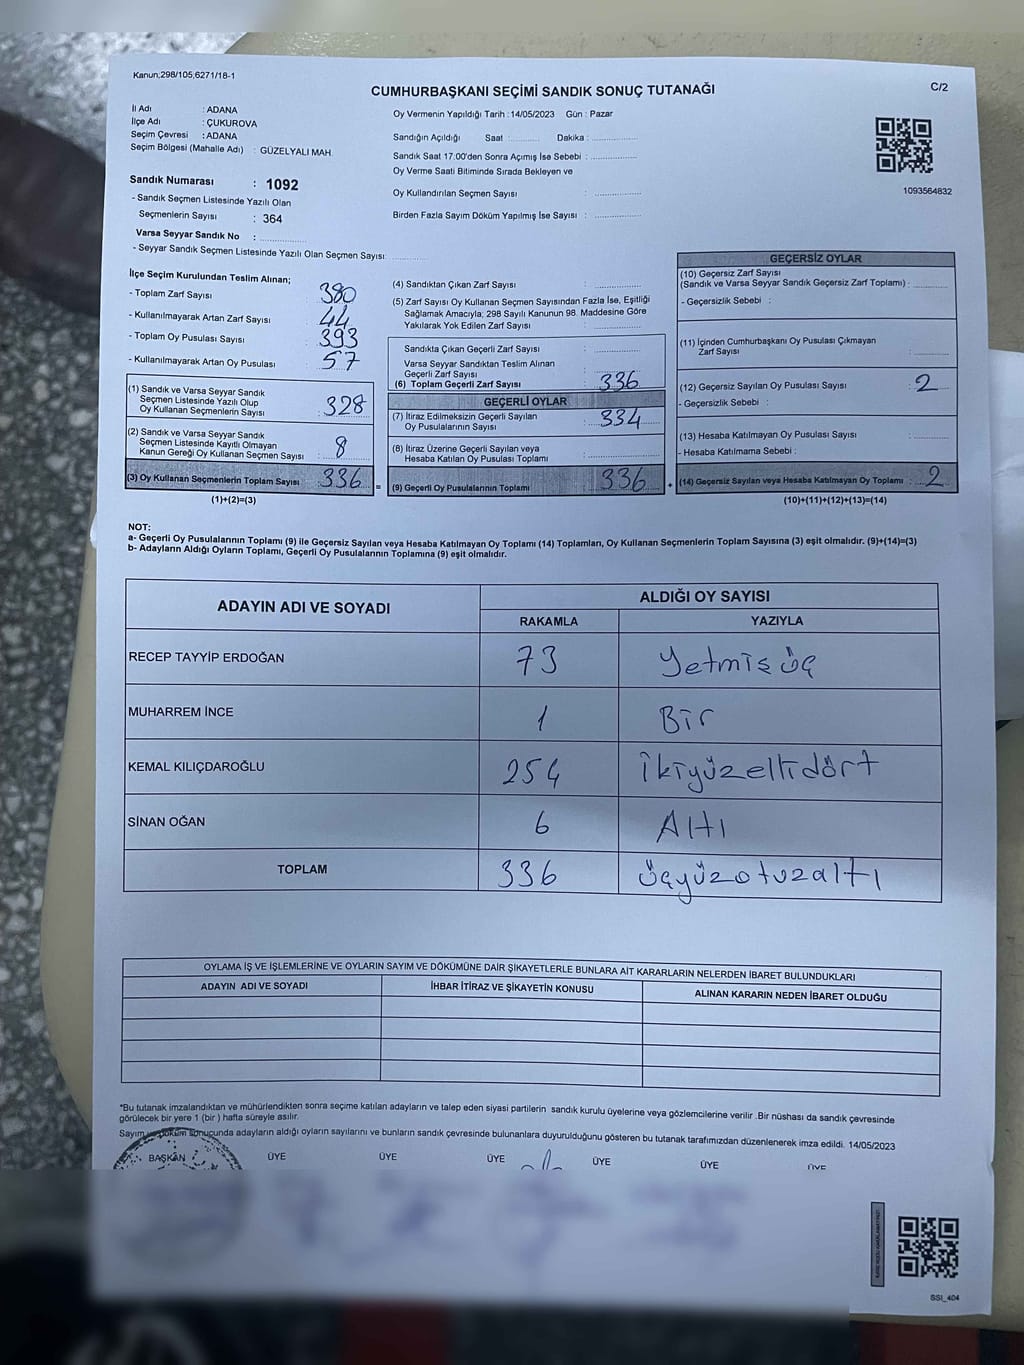 Kanun;298/105,6271/18-1
CUMHURBAŞKANI SEÇİMİ SANDIK SONUÇ TUTANAĞI
C/2
İl Adı : ADANA
İlçe Adı : ÇUKUROVA
Seçim Çevresi : ADANA
Seçim Bölgesi (Mahalle Adı) : GÜZELYALI MAH.
Sandık Numarası : 1092
- Sandık Seçmen Listesinde Yazılı Olan
Seçmenlerin Sayısı : 364
Varsa Seyyar Sandık No :
- Seyyar Sandık Seçmen Listesinde Yazılı Olan Seçmen Sayısı:
Oy Vermenin Yapıldığı Tarih : 14/05/2023 Gün : Pazar
Sandığın Açıldığı Saat : Dakika :
Sandık Saat 17:00'den Sonra Açımış İse Sebebi :
Oy Verme Saati Bitiminde Sırada Bekleyen ve
Oy Kullandırılan Seçmen Sayısı :
Birden Fazla Sayım Döküm Yapılmış İse Sayısı :
1093564832
İlçe Seçim Kurulundan Teslim Alınan;
- Toplam Zarf Sayısı : 380
- Kullanılmayarak Artan Zarf Sayısı : 44
- Toplam Oy Pusulası Sayısı : 393
- Kullanılmayarak Artan Oy Pusulası : 57
(1) Sandık ve Varsa Seyyar Sandık
Seçmen Listesinde Yazılı Olup
Oy Kullanan Seçmenlerin Sayısı : 328
(2) Sandık ve Varsa Seyyar Sandık
Seçmen Listesinde Kayıtlı Olmayan
Kanun Gereği Oy Kullanan Seçmen Sayısı : 8
(3) Oy Kullanan Seçmenlerin Toplam Sayısı : 336
(1)+(2)=(3)
=
(4) Sandıktan Çıkan Zarf Sayısı :
(5) Zarf Sayısı Oy Kullanan Seçmen Sayısından Fazla İse, Eşitliği
Sağlamak Amacıyla; 298 Sayılı Kanunun 98. Maddesine Göre
Yakılarak Yok Edilen Zarf Sayısı :
Sandıkta Çıkan Geçerli Zarf Sayısı :
Varsa Seyyar Sandıktan Teslim Alınan
Geçerli Zarf Sayısı :
(6) Toplam Geçerli Zarf Sayısı : 336
GEÇERLİ OYLAR
(7) İtiraz Edilmeksizin Geçerli Sayılan
Oy Pusulalarının Sayısı : 334
(8) İtiraz Üzerine Geçerli Sayılan veya
Hesaba Katılan Oy Pusulası Toplamı :
(9) Geçerli Oy Pusulalarının Toplamı : 336
+
GEÇERSİZ OYLAR
(10) Geçersiz Zarf Sayısı
(Sandık ve Varsa Seyyar Sandık Geçersiz Zarf Toplamı) :
- Geçersizlik Sebebi :
(11) İçinden Cumhurbaşkanı Oy Pusulası Çıkmayan
Zarf Sayısı :
(12) Geçersiz Sayılan Oy Pusulası Sayısı : 2
- Geçersizlik Sebebi :
(13) Hesaba Katılmayan Oy Pusulası Sayısı :
- Hesaba Katılmama Sebebi :
(14) Geçersiz Sayılan veya Hesaba Katılmayan Oy Toplamı : 2
(10)+(11)+(12)+(13)=(14)
NOT:
a- Geçerli Oy Pusulalarının Toplamı (9) ile Geçersiz Sayılan veya Hesaba Katılmayan Oy Toplamı (14) Toplamları, Oy Kullanan Seçmenlerin Toplam Sayısına (3) eşit olmalıdır. (9)+(14)=(3)
b- Adayların Aldığı Oyların Toplamı, Geçerli Oy Pusulalarının Toplamına (9) eşit olmalıdır.
ADAYIN ADI VE SOYADI
ALDIĞI OY SAYISI
RAKAMLA YAZIYLA
RECEP TAYYİP ERDOĞAN 73 Yetmiş üç
MUHARREM İNCE 1 Bir
KEMAL KILIÇDAROĞLU 254 İkiyüzellidört
SİNAN OĞAN 6 Altı
TOPLAM 336 üçyüzotuzaltı
OYLAMA İŞ VE İŞLEMLERİNE VE OYLARIN SAYIM VE DÖKÜMÜNE DAİR ŞİKAYETLERLE BUNLARA AİT KARARLARIN NELERDEN İBARET BULUNDUKLARI
ADAYIN ADI VE SOYADI İHBAR İTİRAZ VE ŞİKAYETİN KONUSU ALINAN KARARIN NEDEN İBARET OLDUĞU
*Bu tutanak imzalandıktan ve mühürlendikten sonra seçime katılan adayların ve talep eden siyasi partilerin sandık kurulu üyelerine veya gözlemcilerine verilir .Bir nüshası da sandık çevresinde
görülecek bir yere 1 (bir ) hafta süreyle asılır.
Sayım ve döküm sonucunda adayların aldığı oyların sayılarını ve bunların sandık çevresinde bulunanlara duyurulduğunu gösteren bu tutanak tarafımızdan düzenlenerek imza edildi. 14/05/2023
BAŞKAN ÜYE ÜYE ÜYE ÜYE ÜYE ÜYE
SSI_404